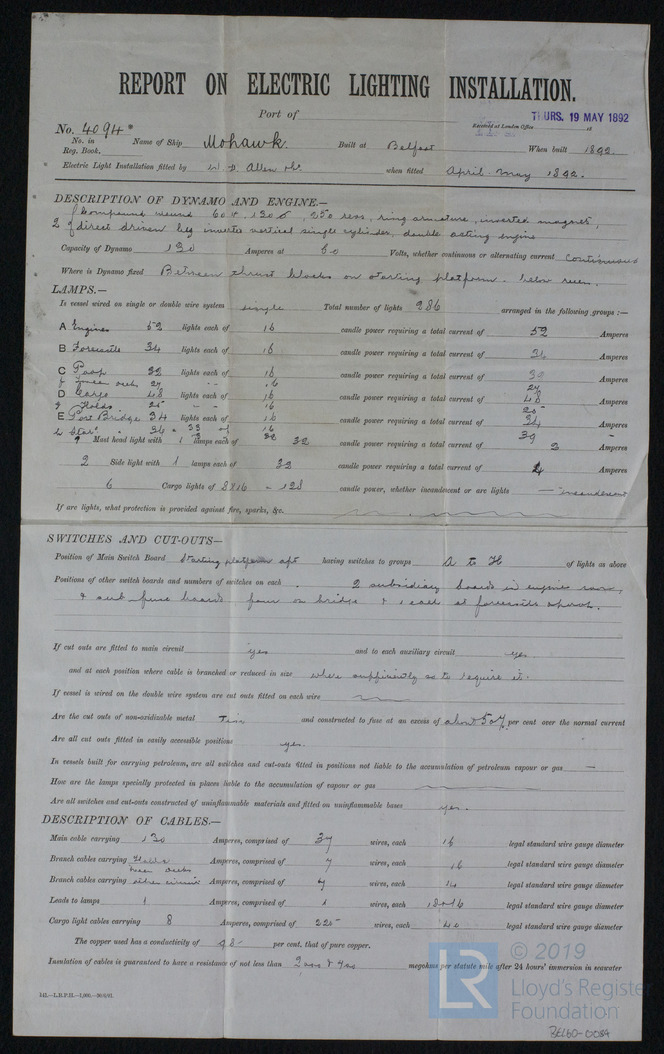 REPORT ON ELECTRIC LIGHTING INSTALLATION.
Port of
THURS. 19 MAY 1892
Received at London Office 18
No. 4094
No. in Reg. Book. Name of Ship Mohawk. Built at Belfast When built 1892.
Electric Light Installation fitted by W. H. Allen & Co. when fitted April May 1892.
DESCRIPTION OF DYNAMO AND ENGINE.—
2 Compound wound 60 v, 130 250 revs, ring armature, inverted magnet,
direct driven by inverted vertical single cylinder, double acting engine
Capacity of Dynamo 130 Amperes at 60 Volts, whether continuous or alternating current Continuous
Where is Dynamo fixed Between thrust blocks on starting platform.
LAMPS.—
Is vessel wired on single or double wire system single Total number of lights 286 arranged in the following groups :—
A Engines 52 lights each of 16 candle power requiring a total current of 52 Amperes
B Forecastle 34 lights each of 16 candle power requiring a total current of 34 Amperes
C Poop 32 lights each of 16 candle power requiring a total current of Amperes
24 16 24
D Cargo 48 lights each of 16 candle power requiring a total current of 48 Amperes
Holds 25 16 25
E Port Bridge 34 lights each of 16 candle power requiring a total current of 34 Amperes
Star 34
Mast head light with 1 lamps each of 32 candle power requiring a total current of 2 Amperes
2 Side light with 1 lamps each of 32 candle power requiring a total current of 4 Amperes
6 Cargo lights of 8 x 16 = 128 candle power, whether incandescent or arc lights — incandescent
If arc lights, what protection is provided against fire, sparks, &c.
SWITCHES AND CUT-OUTS—
Position of Main Switch Board Starting platform aft having switches to groups A to H of lights as above
Positions of other switch boards and numbers of switches on each 2 subsidiary boards in engine room,
& sub fuse boards four on bridge & 1 each at forecastle
If cut outs are fitted to main circuit yes and to each auxiliary circuit yes
and at each position where cable is branched or reduced in size where sufficiently so to require it.
If vessel is wired on the double wire system are cut outs fitted on each wire
Are the cut outs of non-oxidizable metal Tin and constructed to fuse at an excess of about 50% per cent over the normal current
Are all cut outs fitted in easily accessible positions yes.
In vessels built for carrying petroleum, are all switches and cut-outs fitted in positions not liable to the accumulation of petroleum vapour or gas —
How are the lamps specially protected in places liable to the accumulation of vapour or gas
Are all switches and cut-outs constructed of uninflammable materials and fitted on uninflammable bases yes.
DESCRIPTION OF CABLES.—
Main cable carrying 130 Amperes, comprised of 37 wires, each 16 legal standard wire gauge diameter
Branch cables carrying Holds Amperes, comprised of 7 wires, each 16 legal standard wire gauge diameter
Branch cables carrying other circuits Amperes, comprised of 7 wires, each 14 legal standard wire gauge diameter
Leads to lamps 1 Amperes, comprised of 1 wires, each 18 & 16 legal standard wire gauge diameter
Cargo light cables carrying 8 Amperes, comprised of 225 wires, each 40 legal standard wire gauge diameter
The copper used has a conductivity of 98 per cent. that of pure copper.
Insulation of cables is guaranteed to have a resistance of not less than megohms per statute mile after 24 hours' immersion in seawater
© 2019
LR Lloyd's Register
Foundation
BEL60-0084